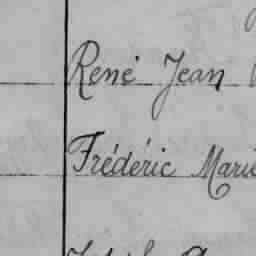 René Jean
Frédéric Marie